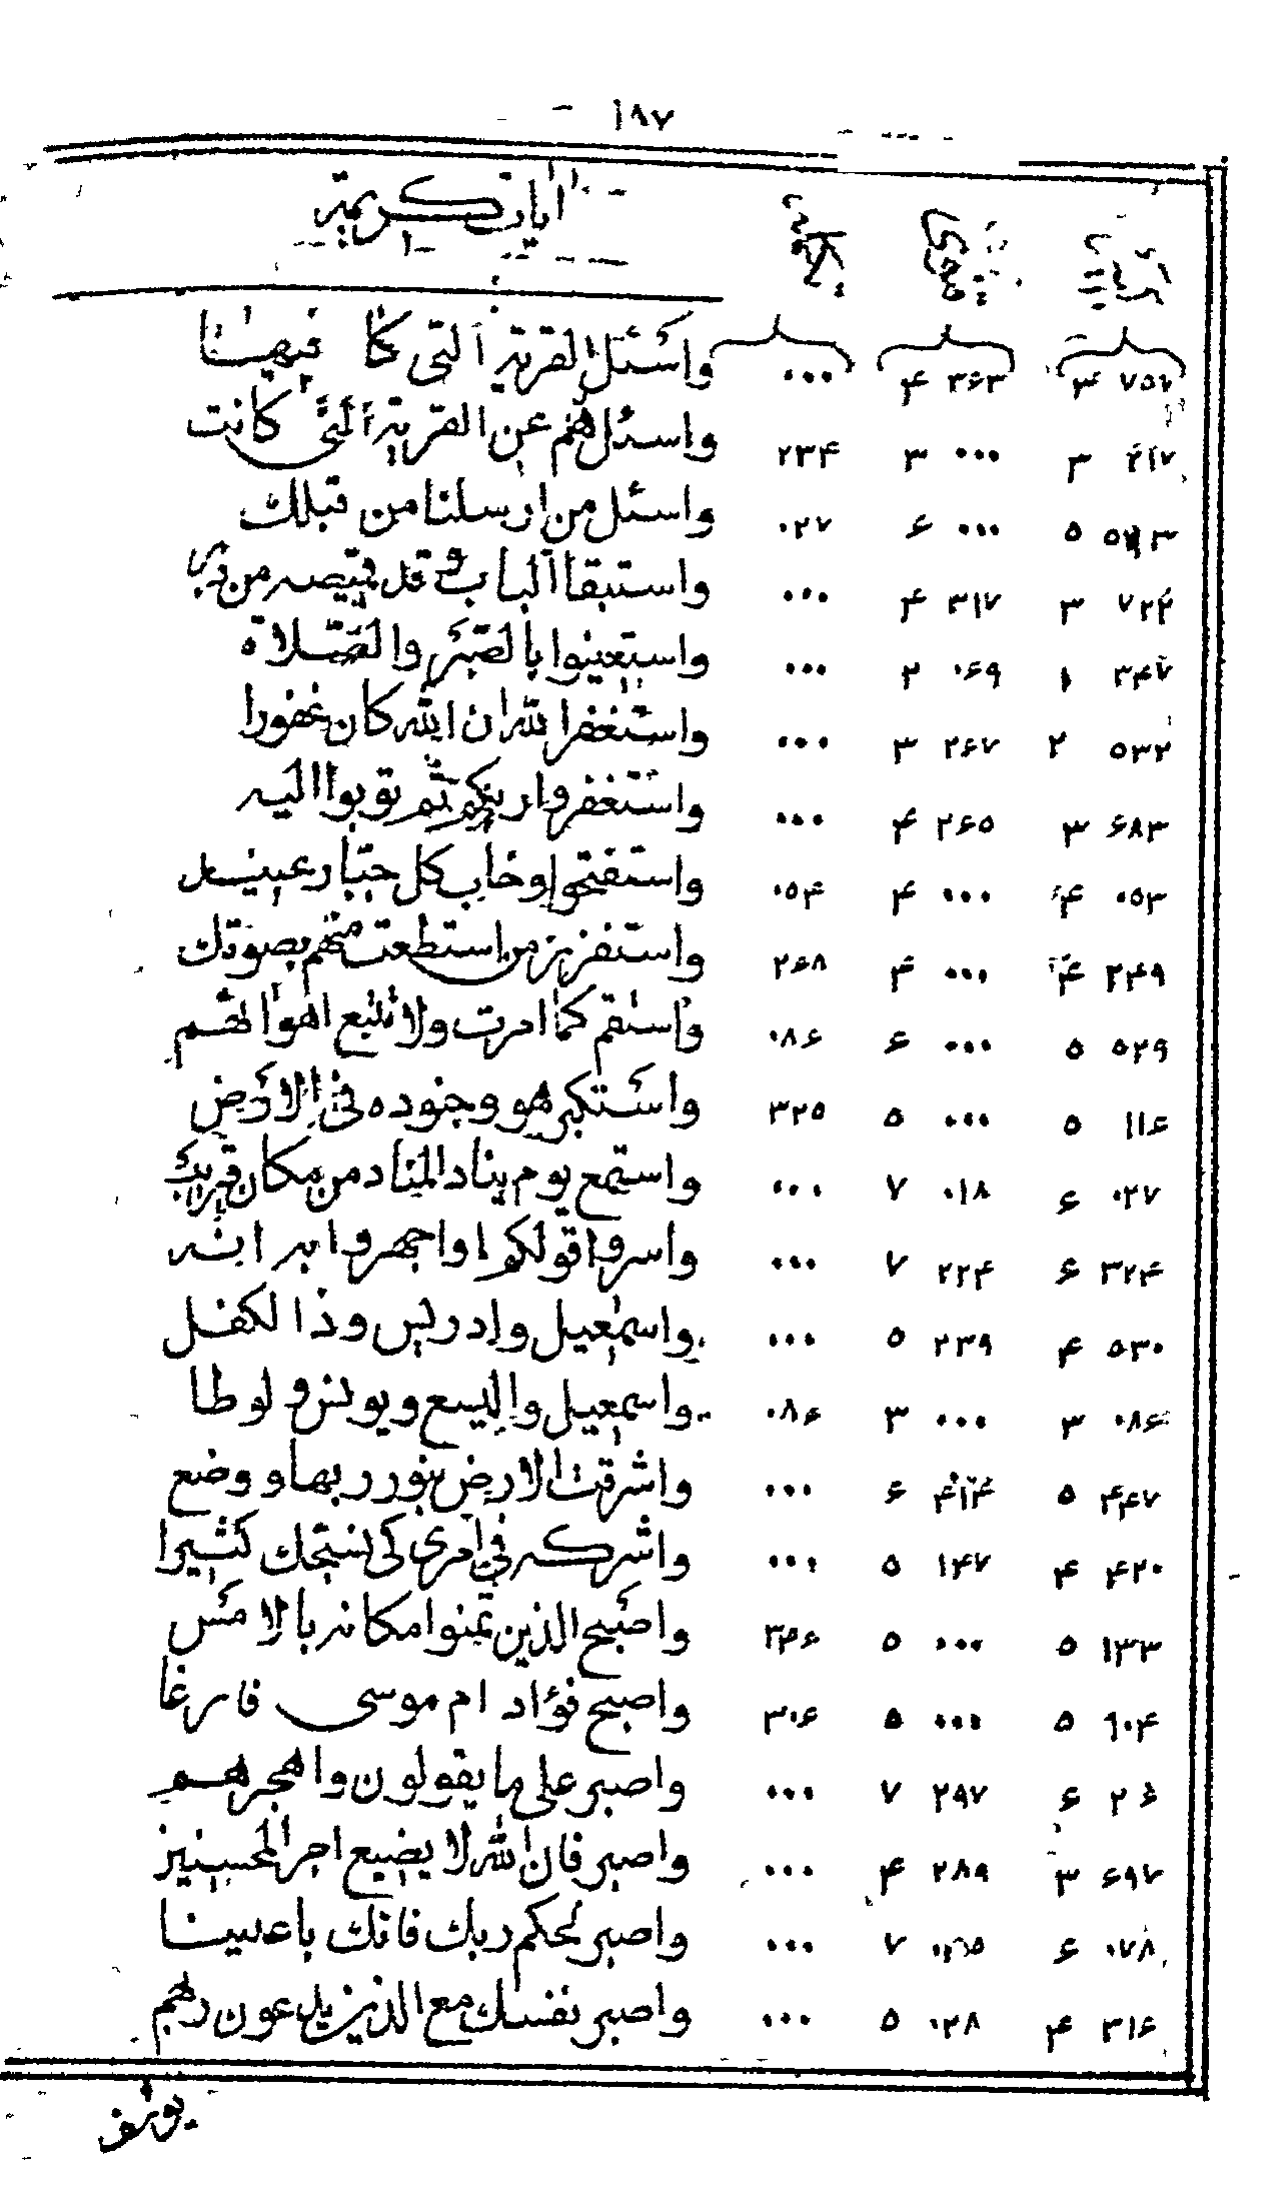 ١٨٧
آیات کریمة
٣ ٤ ٣۶٣ ٠٠٠ واسئل القریة التی کنا فیها
٣ ٣ ٠٠٠ ٢٣۴ واسئلهم عن القریة التی کانت
٥ ۶ ٠٠٠ ٠٢٧ واسئل من ارسلنا من قبلك
٧٢۴ ٣ ٣١٧ ۴ ٠٠٠ واستبقا الباب وقدت قمیصه من دبر
٣۴٧ ١ ٠۶٩ ٢ ٠٠٠ واستعینوا بالصبر والصلاة
٥٣٢ ٢ ٢۶٧ ٣ ٠٠٠ واستغفر الله ان الله کان غفورا
۶٨٣ ٣ ٢۶٥ ۴ ٠٠٠ واستغفروا ربکم ثم توبوا الیه
٠٥٣ ۴ ٠٠٠ ۴ ٠٥۴ واستفتحوا وخاب کل جبار عنید
٢۴٩ ۴ ٠٠٠ ۴ ٢۶٨ واستفزز من استطعت منهم بصوتك
٥٢٩ ٥ ٠٠٠ ۶ ٠٨۶ واستقم کما امرت ولا تتبع اهوائهم
١١۶ ٥ ٠٠٠ ٥ ٣٢٥ واستکبر هو وجنوده فی الارض
٠٢٧ ۶ ٠١٨ ٧ ٠٠٠ واستمع یوم یناد المناد من مکان قریب
٣٢۴ ۶ ٢٢۴ ٧ ٠٠٠ واسروا قولکم او اجهروا به انه
٥٣٠ ۴ ٢٣٩ ٥ ٠٠٠ واسمعیل وادریس وذا الکفل
٠٨۶ ٣ ٠٠٠ ٣ ٠٨۶ واسمعیل والیسع ویونس ولوطا
۴۴٧ ٥ ۴١۴ ۶ ٠٠٠ واشرقت الارض بنور ربها ووضع
۴٢٠ ۴ ١۴٧ ٥ ٠٠٠ واشرکه فی امری کی نسبحك کثیرا
١٣٣ ٥ ٠٠٠ ٥ واصبح الذین تمنوا مکانه بالامس
۶٠۴ ٥ ٠٠٠ ٥ ٣٠۶ واصبح فؤاد ام موسی فارغا
۶ ٢٩٧ ٧ ٠٠٠ واصبر علی ما یقولون واهجرهم
۶٩٧ ٣ ٢٨٩ ۴ ٠٠٠ واصبر فان الله لا یضیع اجر المحسنین
٠٧٨ ۶ ٧ ٠٠٠ واصبر لحکم ربك فانك باعیننا
٣١۶ ۴ ٠٢٨ ٥ ٠٠٠ واصبر نفسك مع الذین یدعون ربهم